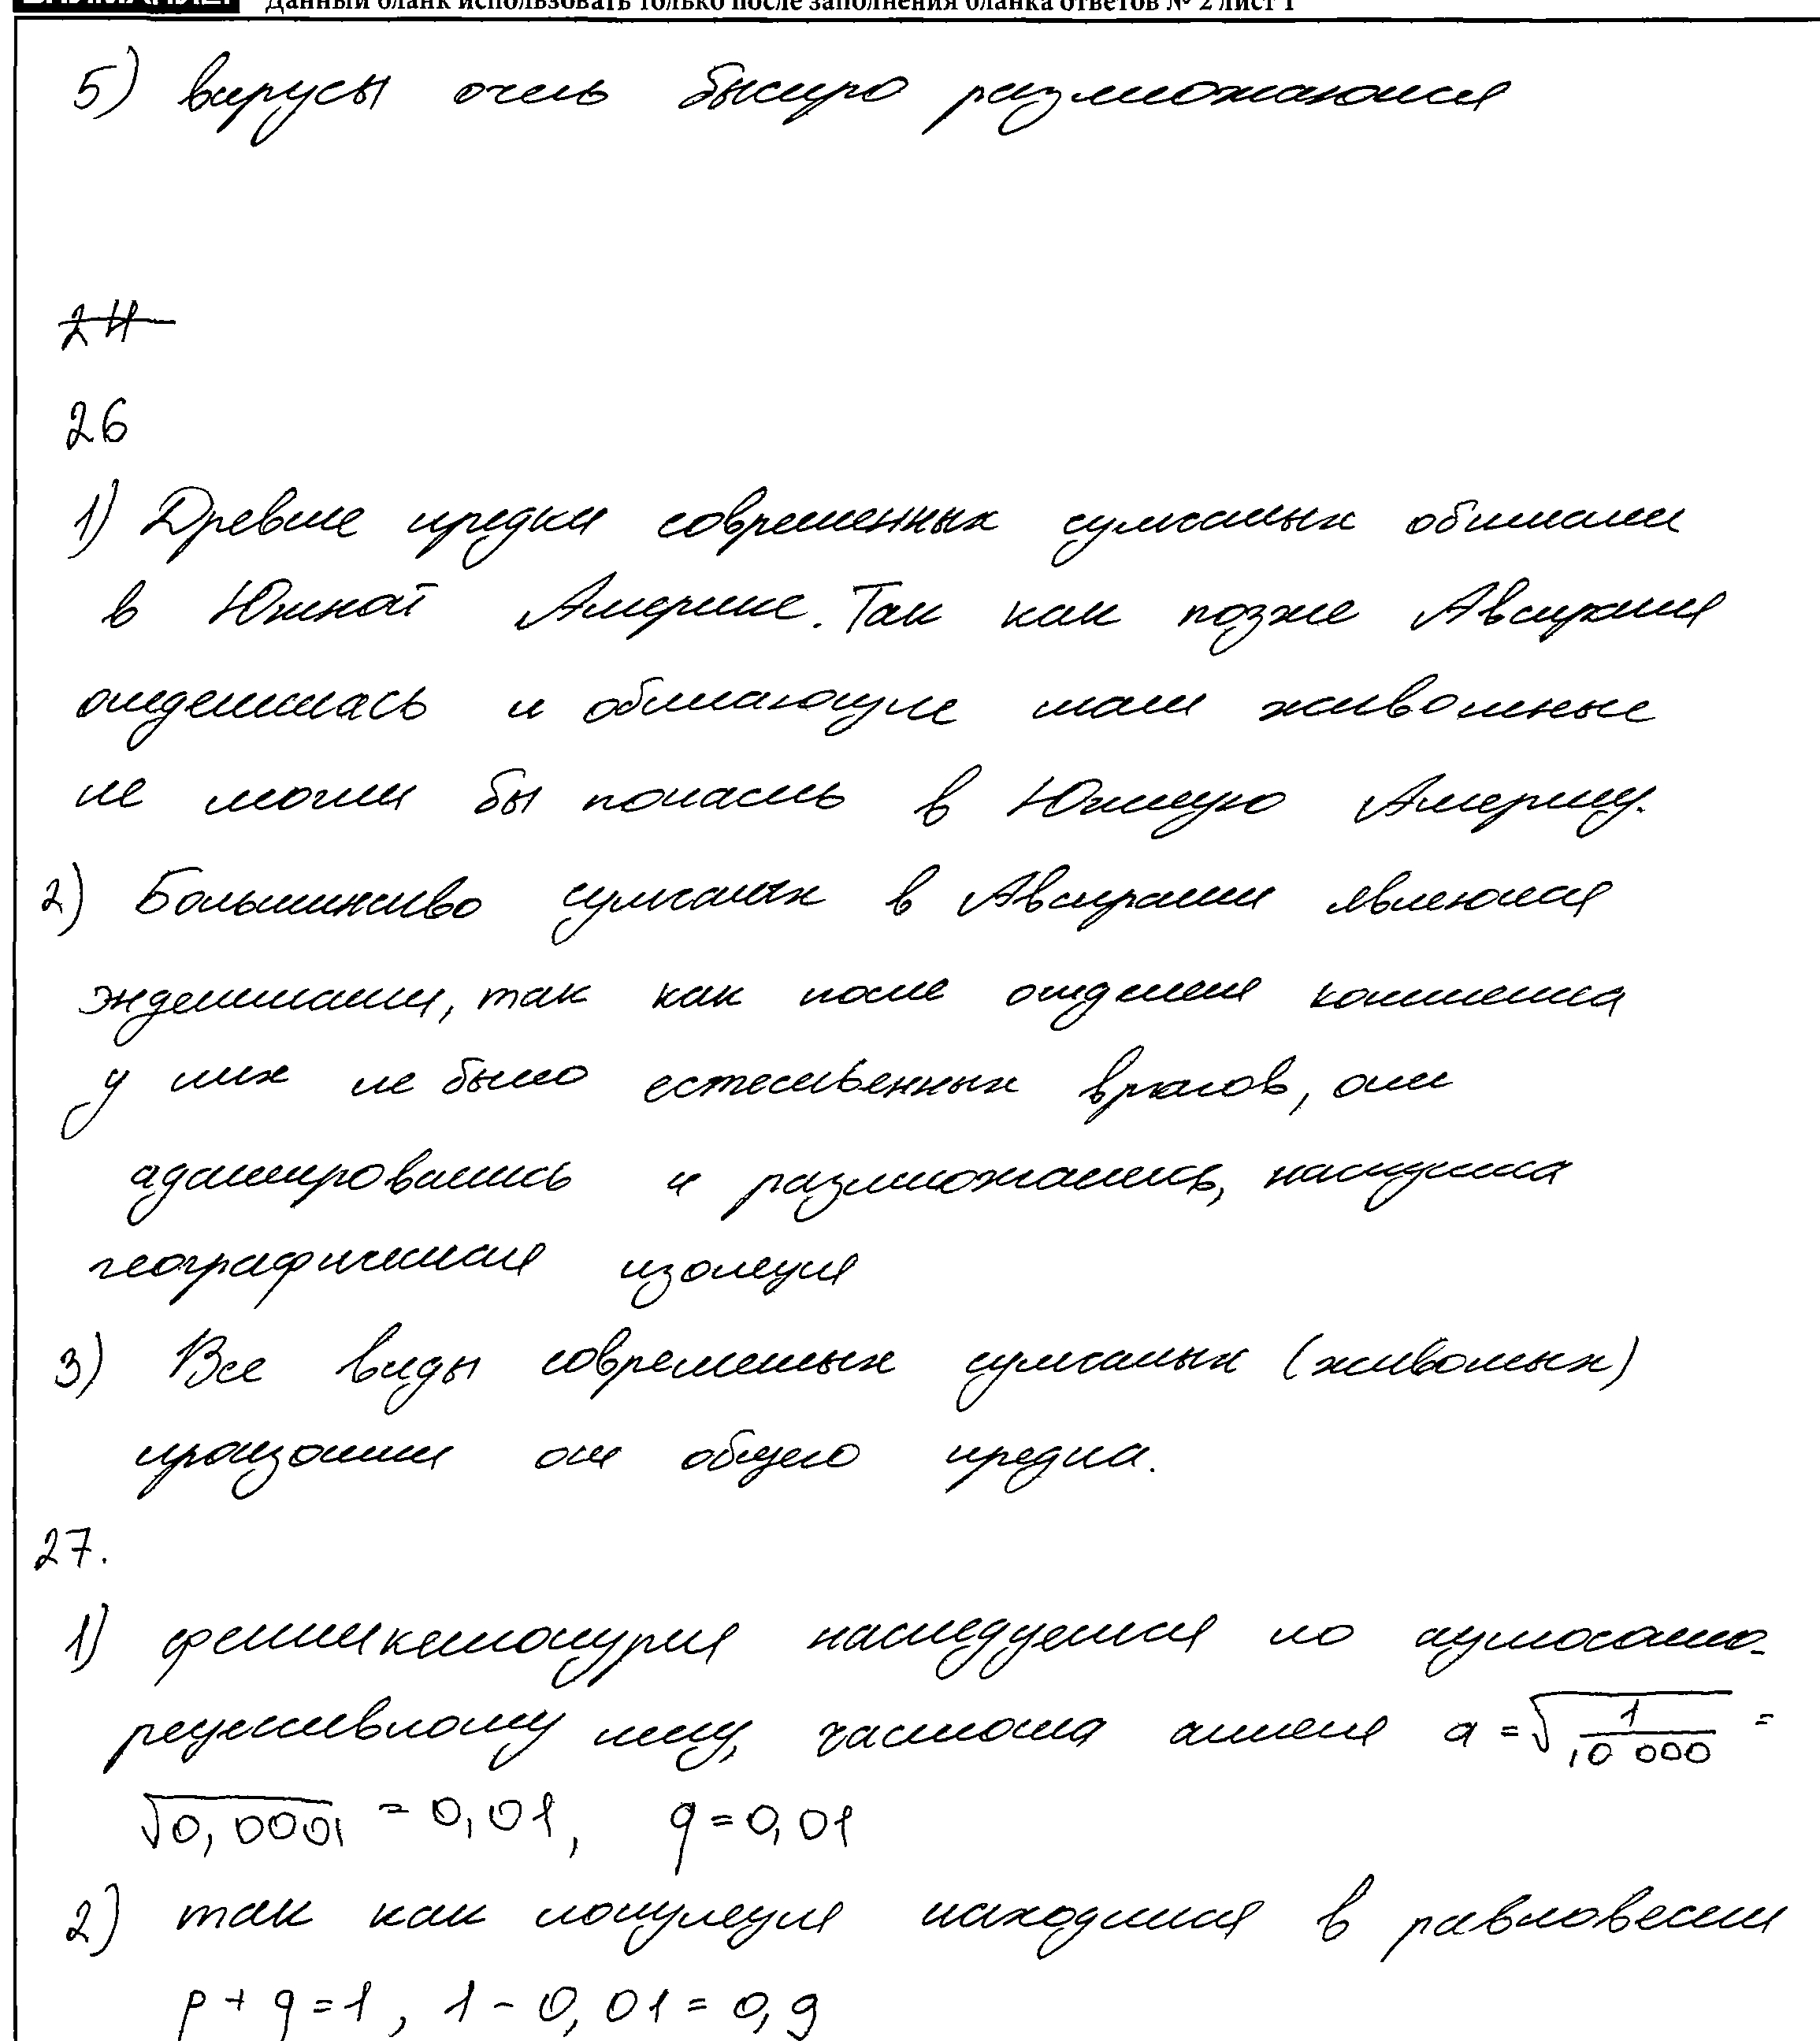 Данный бланк использовать только после заполнения бланка ответов № 2 лист 1
5) вирусы очень быстро размножаются
24
26
1) Древние предки современных сумчатых обитали
в Южной Америке. Так как позже Австралия
отделилась и обитающие там животные
не могли бы попасть в Южную Америку.
2) Большинство сумчатых в Австралии являются
эндемиками, так как после отделения континента
у них не было естественных врагов, они
адаптировались и размножались, наступила
географическая изоляция
3) Все виды современных сумчатых (животных)
произошли от общего предка.
27.
1) фенилкетонурия наследуется по аутосомно-
рецессивному типу, частота аллеля a = √1/10 000 =
√0,0001 = 0,01, q = 0,01
2) так как популяция находится в равновесии
p + q = 1, 1 - 0,01 = 0,9